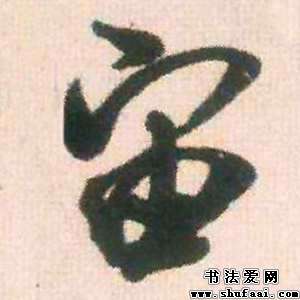 宙
书法爱网
www.shufaai.com